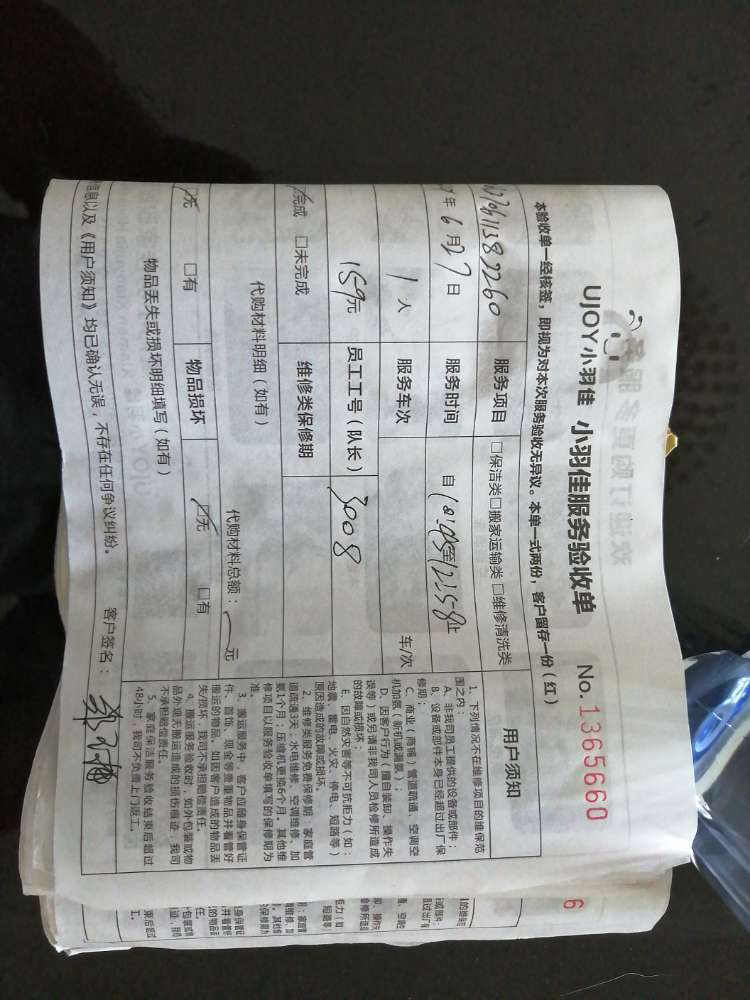 UJOY小羽佳 小羽佳服务验收单 No.1365660
本验收单一经核签，即视为对本次服务验收无异议。本单一式两份，客户留存一份（红）
服务项目 □保洁类□搬家运输类 □维修清洗类
年6月27日 服务时间 自 至 止
1人 服务车次 车/次
159元 员工工号（队长） 3008
完成 □未完成 维修类保修期
代购材料明细（如有） 代购材料总额： 元
无 □有 物品损坏 无 □有
物品丢失或损坏明细填写（如有）
信息以及《用户须知》均已确认无误，不存在任何争议纠纷。 客户签名：
用户须知
1、下列情况不在维修项目的维保范
围之内：
A、非我司员工提供的设备或部件；
B、设备或部件本身已经超过出厂保
修期；
C、商业（商铺）管道疏通、空调空
机加氨（新机或漏氨）；
D、因客户行为（擅自装卸、操作失
误等）或另请非我司人员检修所造成
的故障或损坏；
E、因自然灾害等不可抗拒力（如：
地震、雷电、火灾、停电、短路等）
原因造成的故障或损坏。
2、维修类服务免费保修期：家庭管
道疏通3天；水电维修、空调维修、加
氨1个月；压缩机更换6个月，其他维
修项目以服务验收单填写的保修期为
准。
3、搬运服务中，客户应随身保管证
件、首饰、现金等贵重物品并看管好
搬运的物品，如因客户造成的物品丢
失/损坏，我司不承担赔偿责任。
4、搬运服务验收时，如外包装或物
品外观无搬运造成的损伤痕迹，我司
不承担赔偿责任。
5、家庭保洁服务验收结束后超过
48小时，我司不免费上门返工。
6